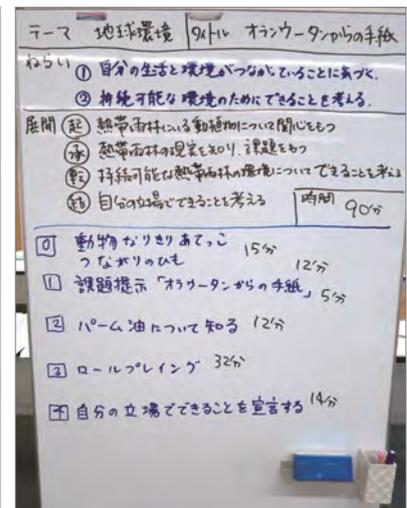 テーマ 地球環境 タイトル オランウータンからの手紙
ねらい ① 自分の生活と環境がつながっていることに気づく.
② 持続可能な環境のためにできることを考える.
展開 起 熱帯雨林にいる動植物について関心をもつ
承 熱帯雨林の現実を知り、課題をもつ
転 持続可能な熱帯雨林の環境についてできることを考える
結 自分の立場でできることを考える 時間 90分
0 動物なりきりあてっこ 15分
つながりのひも 12分
1 課題提示「オラウータンからの手紙」 5分
2 パーム油について知る 12分
3 ロールプレイング 32分
4 自分の立場でできることを宣言する 14分